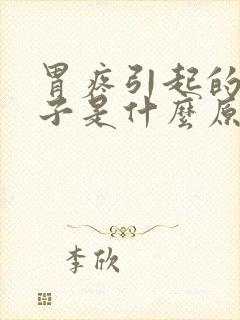 胃疼引起的
子是什麼原
李欣